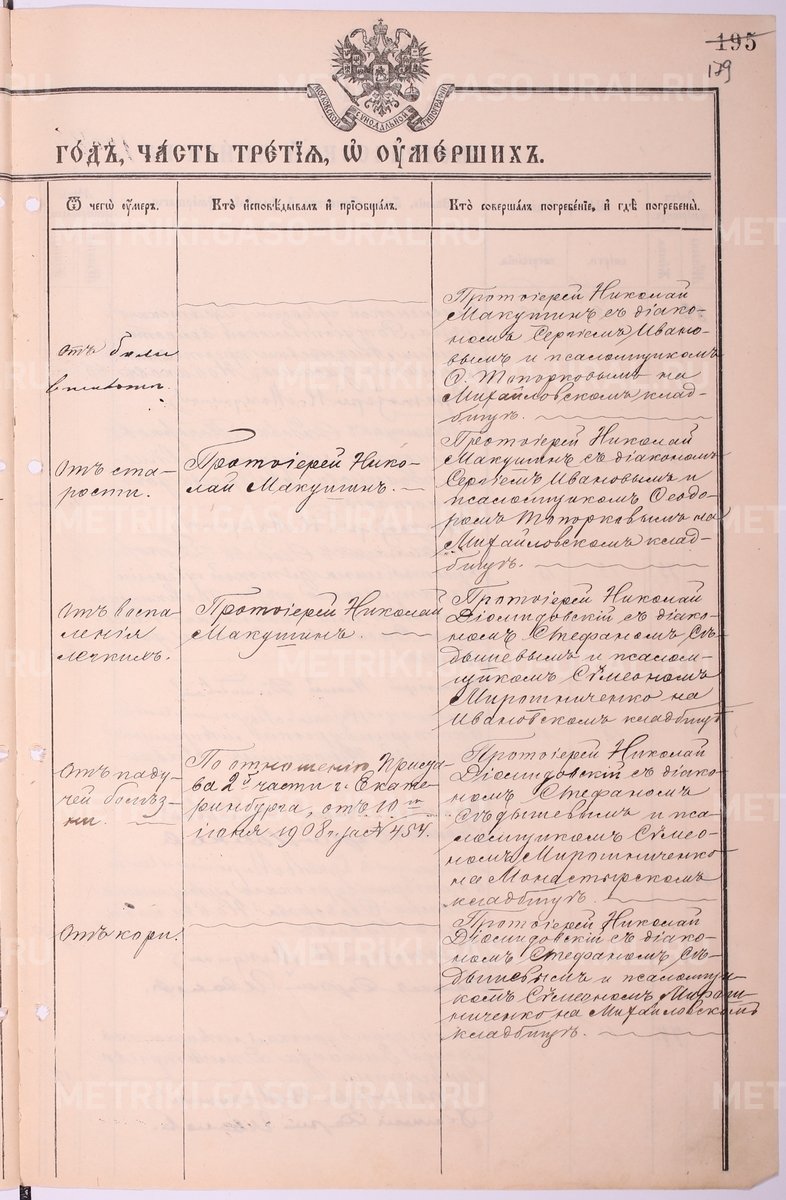 195
179
МОСКОВСКОЙ СѴНОДАЛЬНОЙ ТИПОГРАФІИ
ГОДЪ, ЧАСТЬ ТРЕТІЯ, Ѡ ОУМЕРШИХЪ.
Ѿ чегѡ оумеръ.
Кто исповѣдывалъ и пріобщалъ.
Кто совершалъ погребеніе, и гдѣ погребены.
отъ боли
Протоіерей Николай
Макушинъ съ діако-
номъ Сергіемъ Ивано-
вымъ и псаломщикомъ
Ѳ. Топорковымъ на
Михайловскомъ клад-
бищѣ.
Отъ ста-
рости.
Протоіерей Нико-
лай Макушинъ.
Протоіерей Николай
Макушинъ съ діакономъ
Сергіемъ Ивановымъ и
псаломщикомъ Ѳеодо-
ромъ Топорковымъ на
Михайловскомъ клад-
бищѣ.
Отъ воспа-
ленія
легкихъ.
Протоіерей Николай
Макушинъ.
Протоіерей Николай
Діомидовскій съ діако-
номъ Стефаномъ Сѣ-
дышевымъ и псалом-
щикомъ Сѵмеономъ
Мирошниченко на
Ивановскомъ кладбищѣ
Отъ паду-
чей болѣз-
ни.
По отношенію Приста-
ва 2й части г. Екате-
ринбурга, отъ 10го
іюня 1908 г. за № 454.
Протоіерей Николай
Діомидовскій съ діако-
номъ Стефаномъ
Сѣдышевымъ и пса-
ломщикомъ Сѵмео-
номъ Мирошниченко
на Монастырскомъ
кладбищѣ.
Отъ кори.
Протоіерей Николай
Діомидовскій съ діако-
номъ Стефаномъ Сѣ-
дышевымъ и псаломщи-
комъ Сѵмеономъ Мирош-
ниченко на Михайловскомъ
кладбищѣ.
METRIKI.GASO-URAL.RU